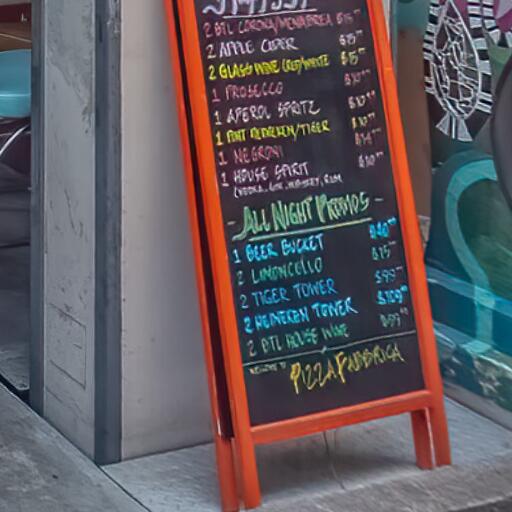 2 BTL CORONA/MENABREA $15
2 APPLE CIDER $15
2 GLASS WINE (RED/WHITE) $15
1 PROSECCO $10
1 APEROL SPRITZ $10
1 PINT HEINEKEN/TIGER $10
1 NEGRONI
1 HOUSE SPIRIT $10
(VODKA, GIN, WHISKEY, RUM
- ALL NIGHT PROMOS -
1 BEER BUCKET $40
2 LIMONCELLO $15
2 TIGER TOWER $99
2 HEINEKEN TOWER $109
2 BTL HOUSE WINE
PIZZAFABBRICA